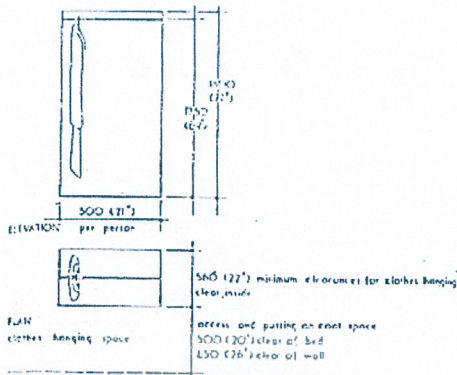 500 (21")
ELEVATION per person
560 (22") minimum clearances for clothes hanging
clear inside
PLAN
clothes hanging space
access and putting on coat space
500 (20") clear of bed
650 (26") clear of wall